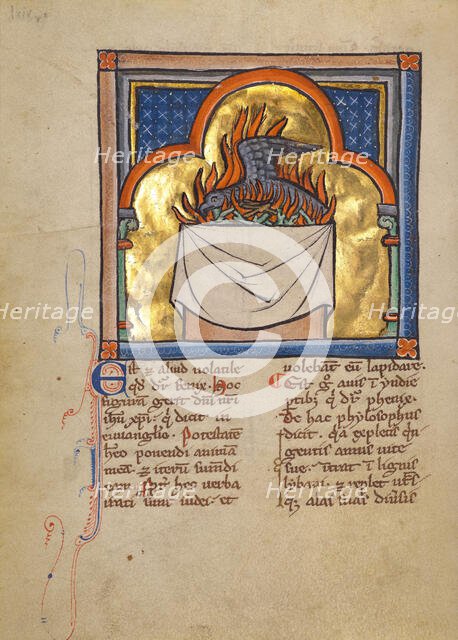 lxiv
Heritage Heritage
Heritage Heritage Heritage
Heritage Heritage
Est et aliud volatile
qd dr fenix. Hoc
figuram gerit dni nri
ihu xpi. qi dicit in
euuanglio. Potestate
heo ponendi animam
mea. et iteru sumendi
eam. Ppt hec verba
irati sunt iudei. et
volebant eu lapidare.
Est g auis in yndie
ptibq qi dr phenix.
De hac physolophus
dicit. qa expletis qn
gentis annis uite
sue. intrat in lignis
lybani. et replet
alas suas diuersis